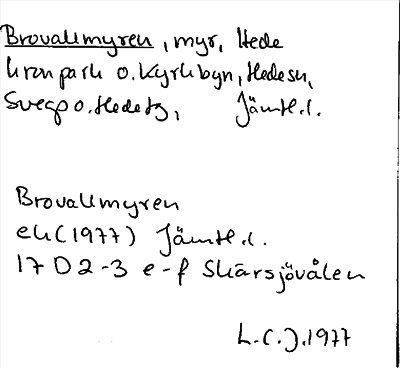 Brovallmyren, myr, Hede
kronpark o. Kyrkbyn, Hedesn,
Svegp o. Hedetg, Jämtl.l.
Brovallmyren
ek (1977) Jämtl.l.
17 D 2-3 e-f Skärsjövålen
L.C.J. 1977